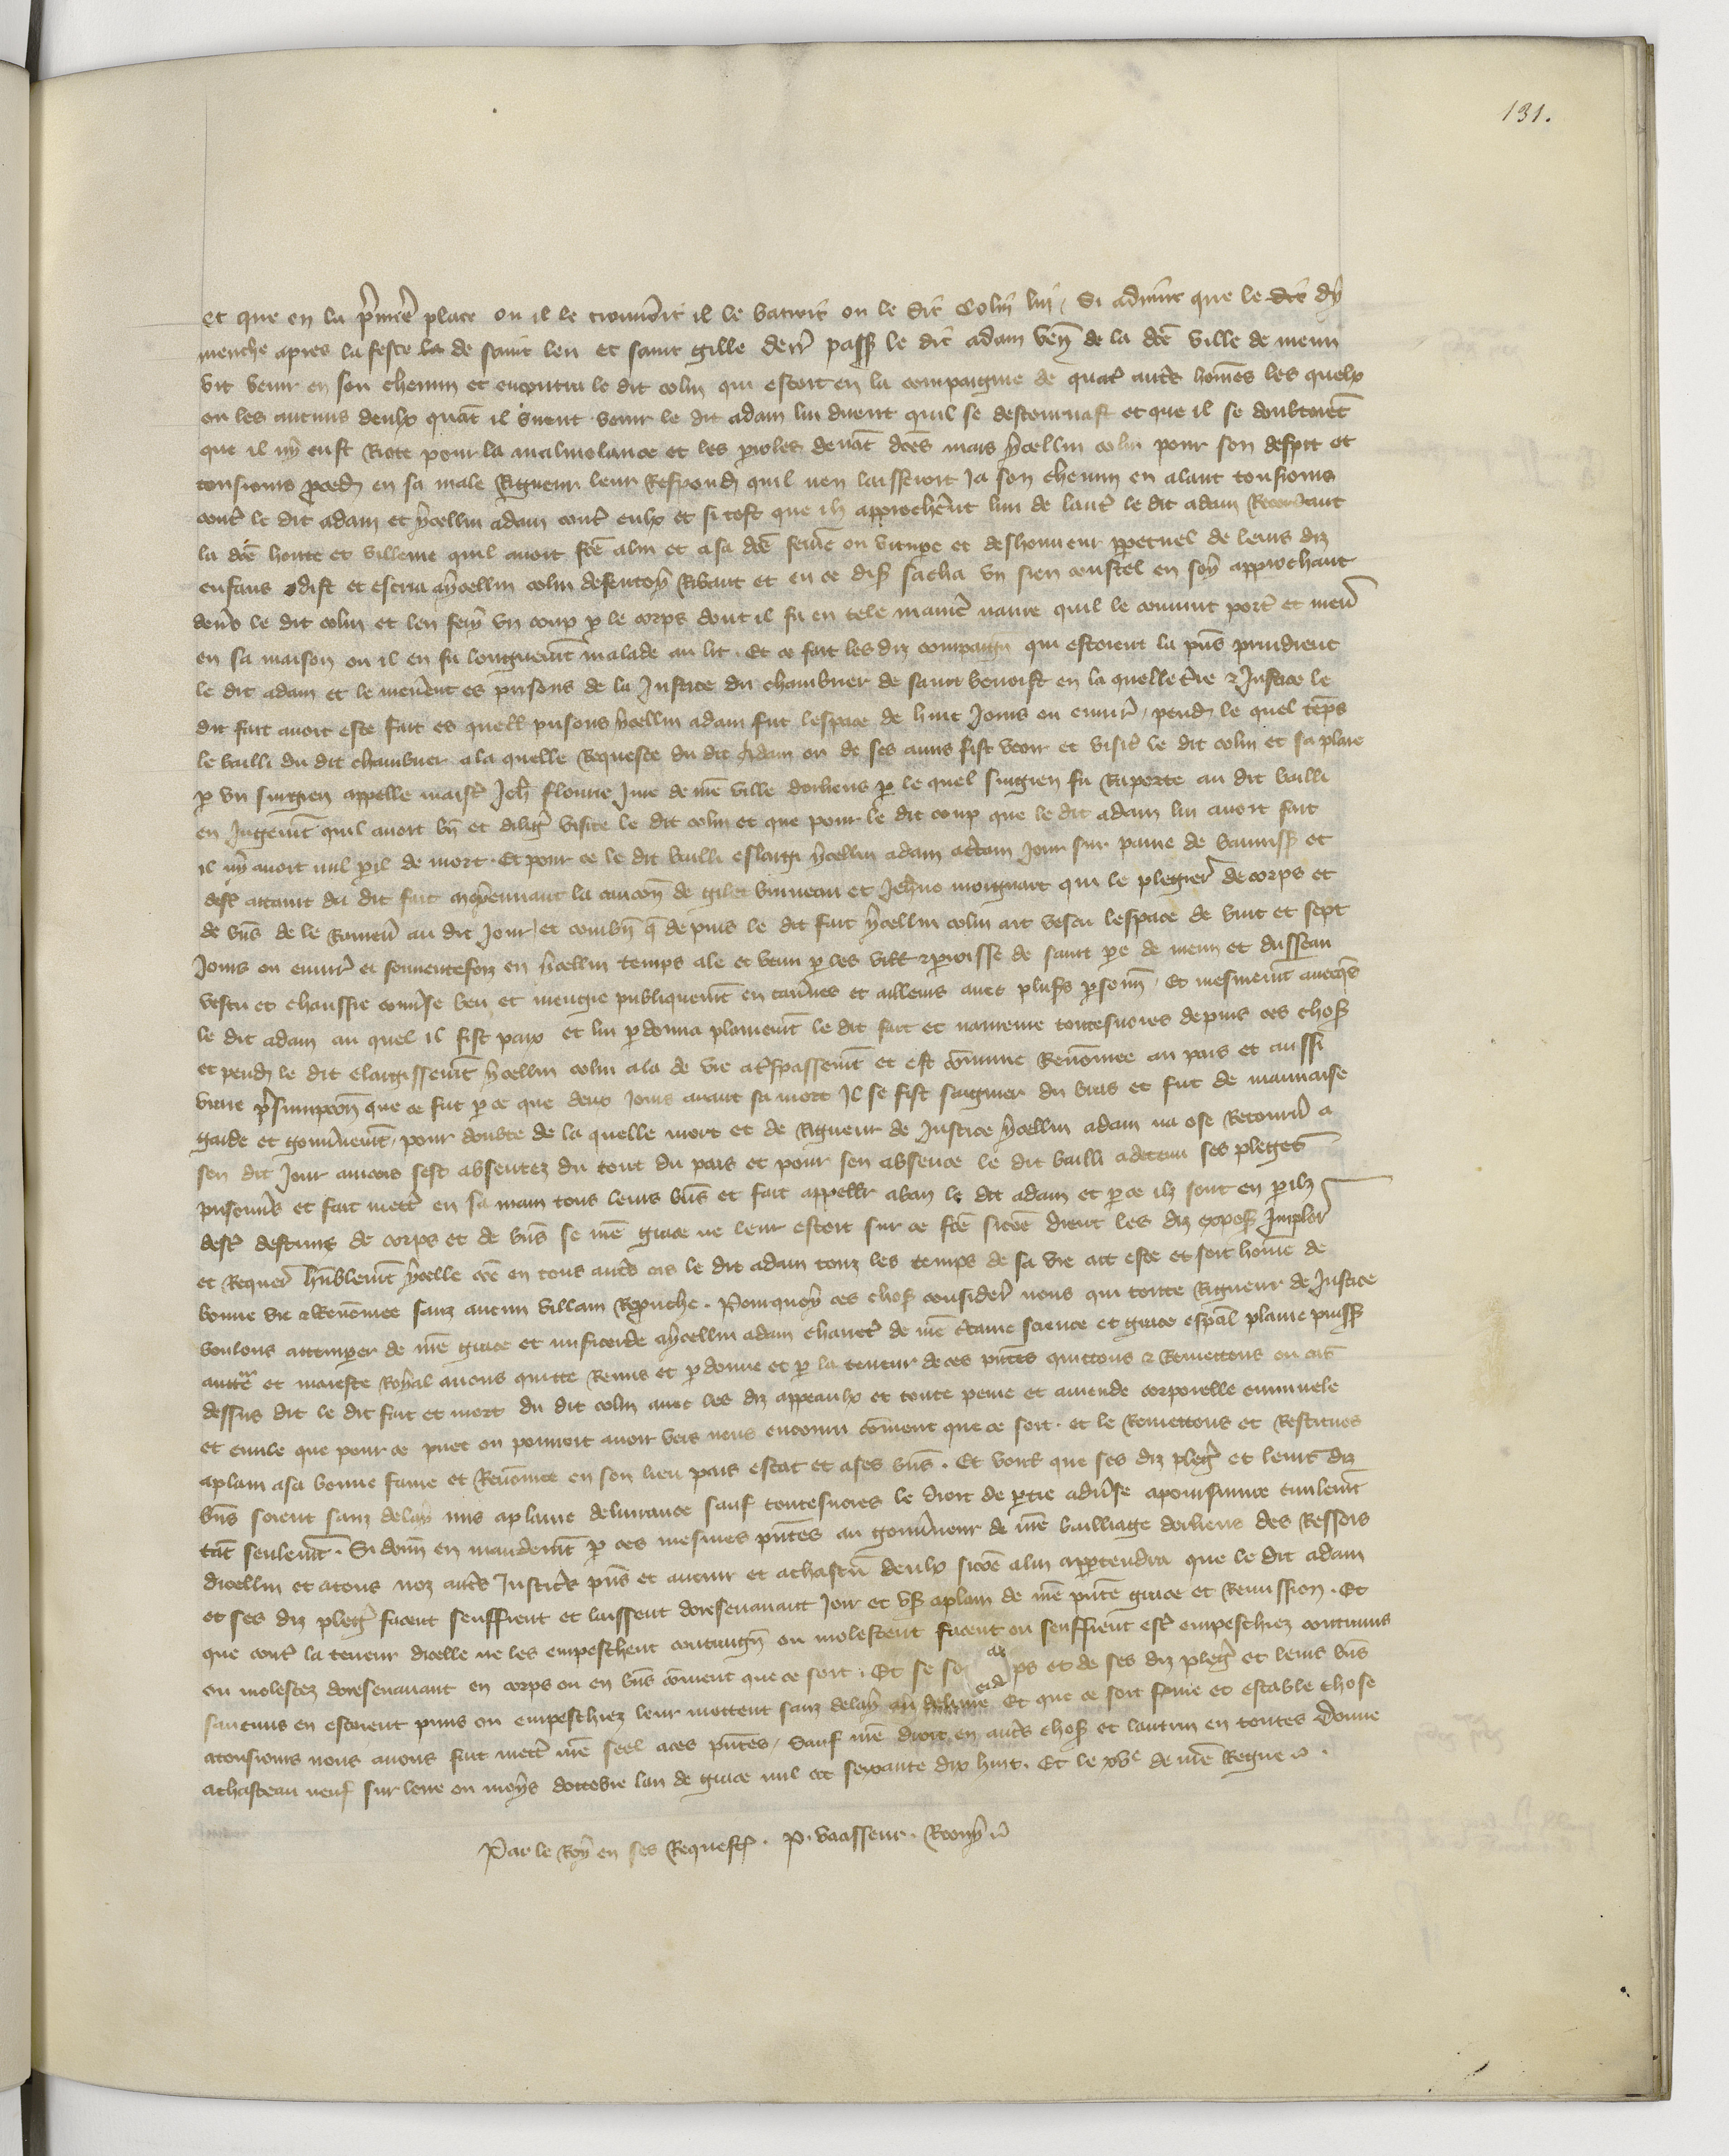 131.
et que en la p̃miẽ place ou il le trouuoit il le batroit ou le dit Colin lui / Si aduint que le dit dÿ
menche apres la feste la de saint leu et saint gille deñr pass le dit adam veñ de la dcẽ ville de meun
vit venir en son chemin et encontra le dit colin qui estoit en la compaignie de quat̾ aut̾s hom̃es les quelx
ou les aucuns deulx quãt il virent venir le dit adam lui dirent quil se destournast et que il se doubtoiẽt
que il nÿ eust Riote pour la maliuolance et les p̲oles deuãt dcẽs mais ÿcellui colin pour son despit et
tousiours p̲ced̃ en sa male Rigueur leur Respond̃ quil nen laisseroit ja son chemin en alant tousiours
cont̾ le dit adam et ÿcellui adam cont̾ eulx et si tost que ilz approchẽrẽt lun de laut̾ le dit adam Recordant
la dcẽ honte et villenie quil auoit fcẽ alui et a sa dcẽ fem̃e ou vitup̲e et deshonneur p̲petuel de leurs diz
enfans dist et escria aÿcellui colin deffentoÿ Ribaut et en ce dis̃ sacha vn sien coustel en soÿ approchant
deũs le dit colin et len ferÿ vn coup p̲ le corps dont il fu en tele manier̾ naure quil le conuint port̾ et meñ
en sa maison ou il en fu longuem̃t malade au lit . Et ce fait les diz compaign̾ qui estoient la p̃ns prindrent
le dit adam et le menẽrent es prisons de la Justice du chambrier de saint benoist en la quelle t̾re & Justice le
dit fait auoit este fait es quell prisons ÿcellui adam fut lespace de huit Jours ou enuir̃ / pend̃ le quel tẽps
le bailli du dit chambrier a la quelle Requeste du dit Adam ou de ses amis fist veoir et visit̾ le dit colin et sa plaie
p̲ vn surgien appelle maist̾ Jeh̃ flourie Jure de nr̃e ville dorliens p̲ le quel surgien fu Raporte au dit bailli
en Jugem̃t quil auoit bñ et dilig̃ visite le dit colin et que pour le dit coup que le dit adam lui auoit fait
il nÿ auoit nul p̲il de mort . Et pour ce le dit bailli eslargi ÿcellui adam a c̾tain Jour sur paine de banniss̃ et
dest̾ attaint du dit fait moÿennant la caucoñ de gilet bruneau et Jeh̃no moignart qui le plegier̃ de corps et
de biẽs de le Ramen̾ au dit Jour / et combñ q̃ depuis le dit fait ÿcellui colin ait vescu lespace de vint et sept
Jours ou enuir̃ et souuentefoiz en ÿcellui temps ale et venu p̲ les vill & p̲roisse de saint p̲e de meun et dusseau
vestu et chaussie conũse beu et mengie publiquem̃t en tau̾nes et ailleurs auec plus̃s p̲soñn . Et mesmem̃t aueq̃s
le dit adam au quel il fist paix et lui p̲donna plainem̃t le dit fait et naureure toutesuoies depuis ces chos̃
et pend̃ le dit elargissem̃t ÿcellui colin ala de vie a t̾spassem̃t et est com̃mune Renom̃mee au pais et aussi
vraie p̃sumpcoñ que ce fut p̲ ce que deux Jours auant sa mort Il se fist saignier du bras et fut de mauuaise
garde et gouũnem̃t / pour doubte de la quelle mort et de Rigueur de Justice ÿcellui adam na ose Retourñ a
sen dit Jour aincois sest absentez du tout du pais et pour sen absence le dit bailli a detenu ses pleges
prisonñs et fait mett̾ en sa main tous leurs biẽs et fait appeller a ban le dit adam et p̲ ce ilz sont en p̲ilz
dest̾ destruis de corps et de biẽs se nr̃e grace ne leur estoit sur ce fcẽ sicõe dient les diz expos̃ Implor̃
et Requer̃ hũblem̃t ÿcelle cõe en tous aut̾s cas le dit adam touz les temps de sa vie ait este et soit hom̃e de
bonne vie & Renom̃mee sanz aucun villain Reprouche . Pourquoÿ ces chos̃ considere̾ nous qui toute Rigueur de Justice
voulons attemp̲er de nr̃e grace et misericorde aÿcellui adam charret̾ de nr̃e c̾taine science et grace esp̲al plaine puiss̃
autt̾e et maieste Roÿal auons quitte Remis et p̲donne et p̲ la teneur de ces p̃ntes quittons & Remettons ou cas
dessus dit le dit fait et mort du dit colin auec les diz appeaulx et toute peine et amende corporelle criminele
et ciuile que pour ce puet ou pourroit auoir vers nous encouru com̃ent que ce soit . et le Remettons et Restituons
aplain a sa bonne fame et Renom̃mee en son lieu pais estat et a ses biẽs . Et voul̃ que ses diz pleg̃ et leurs diz
biẽs soient sanz delaÿ mis aplaine deliurance sauf toutesuoies le droit de p̲tie aduerse apoursuiure ciuilem̃t
tãt seulem̃t . Si doñn en mandem̃t p̲ ces mesmes p̃ntes au gouũneur de nr̃e bailliage dorliens des Ressors
dicellui et atous noz aut̾s Justicies p̃ns et auenir et achascũ deulx sicõe alui app̲tendra que le dit adam
et ses diz pleg̃ facent seuffrent et laissent doresenauant Joir et vs̃ aplain de nr̃e p̃nte grace et Remission . Et
que cont̾ la teneur dicelle ne les empeschent contraign̾ ou molestent facent ou seuffrent est̾ empeschiez contrains
ou molestez doresenauant en corps ou en biẽs com̃ent que ce soit . Et se so cor ps et de ses diz pleg̃ et leurs biẽs
saucuns en estoient prins ou empeschiez leur mettent sanz delaÿ au deliure Et que ce soit ferme et estable chose
atousiours nous auons fait mett̾ nr̃e seel aces p̃ntes / Sauf nr̃e droit en aut̾s chos̃ et lautrui en toutes Donne
achasteau neuf sur leire ou moÿs doctobre lan de grace mil ccc sexante dix huit . Et le xvᵉ de nr̃e Regne .
Par le Roÿ en ses Requestes . P. vaasseur . Recoÿ